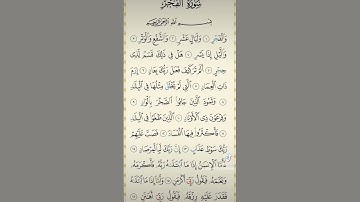 سُورَةُ الْفَجْرِ
بِسْمِ اللَّهِ الرَّحْمَٰنِ الرَّحِيمِ
وَالْفَجْرِ ١ وَلَيَالٍ عَشْرٍ ٢ وَالشَّفْعِ وَالْوَتْرِ ٣
وَاللَّيْلِ إِذَا يَسْرِ ٤ هَلْ فِي ذَٰلِكَ قَسَمٌ لِّذِي
حِجْرٍ ٥ أَلَمْ تَرَ كَيْفَ فَعَلَ رَبُّكَ بِعَادٍ ٦ إِرَمَ
ذَاتِ الْعِمَادِ ٧ الَّتِي لَمْ يُخْلَقْ مِثْلُهَا فِي الْبِلَٰدِ
٨ وَثَمُودَ الَّذِينَ جَابُوا الصَّخْرَ بِالْوَادِ ٩
وَفِرْعَوْنَ ذِي الْأَوْتَادِ ١٠ الَّذِينَ طَغَوْا فِي الْبِلَٰدِ
١١ فَأَكْثَرُوا فِيهَا الْفَسَادَ ١٢ فَصَبَّ عَلَيْهِمْ
رَبُّكَ سَوْطَ عَذَابٍ ١٣ إِنَّ رَبَّكَ لَبِالْمِرْصَادِ ١٤
فَأَمَّا الْإِنسَٰنُ إِذَا مَا ابْتَلَىٰهُ رَبُّهُ فَأَكْرَمَهُ
وَنَعَّمَهُ فَيَقُولُ رَبِّي أَكْرَمَنِ ١٥ وَأَمَّا إِذَا مَا ابْتَلَىٰهُ
فَقَدَرَ عَلَيْهِ رِزْقَهُ فَيَقُولُ رَبِّي أَهَٰنَنِ ١٦